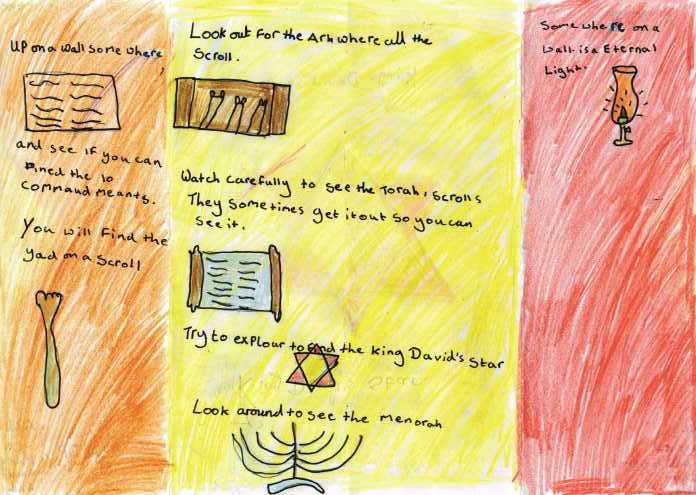 UP on a wall some where,
and see if you can
Fined the 10
command meants.
You will find the
yad on a scroll
Look out For the Ark where all the
Scroll.
Watch carefully to see the Torah, scrolls
They sometimes get it out so you can
see it.
Try to explour to find the King David's Star
Look around to see the menorah
Some where on a
wall is a Eternal
Light.